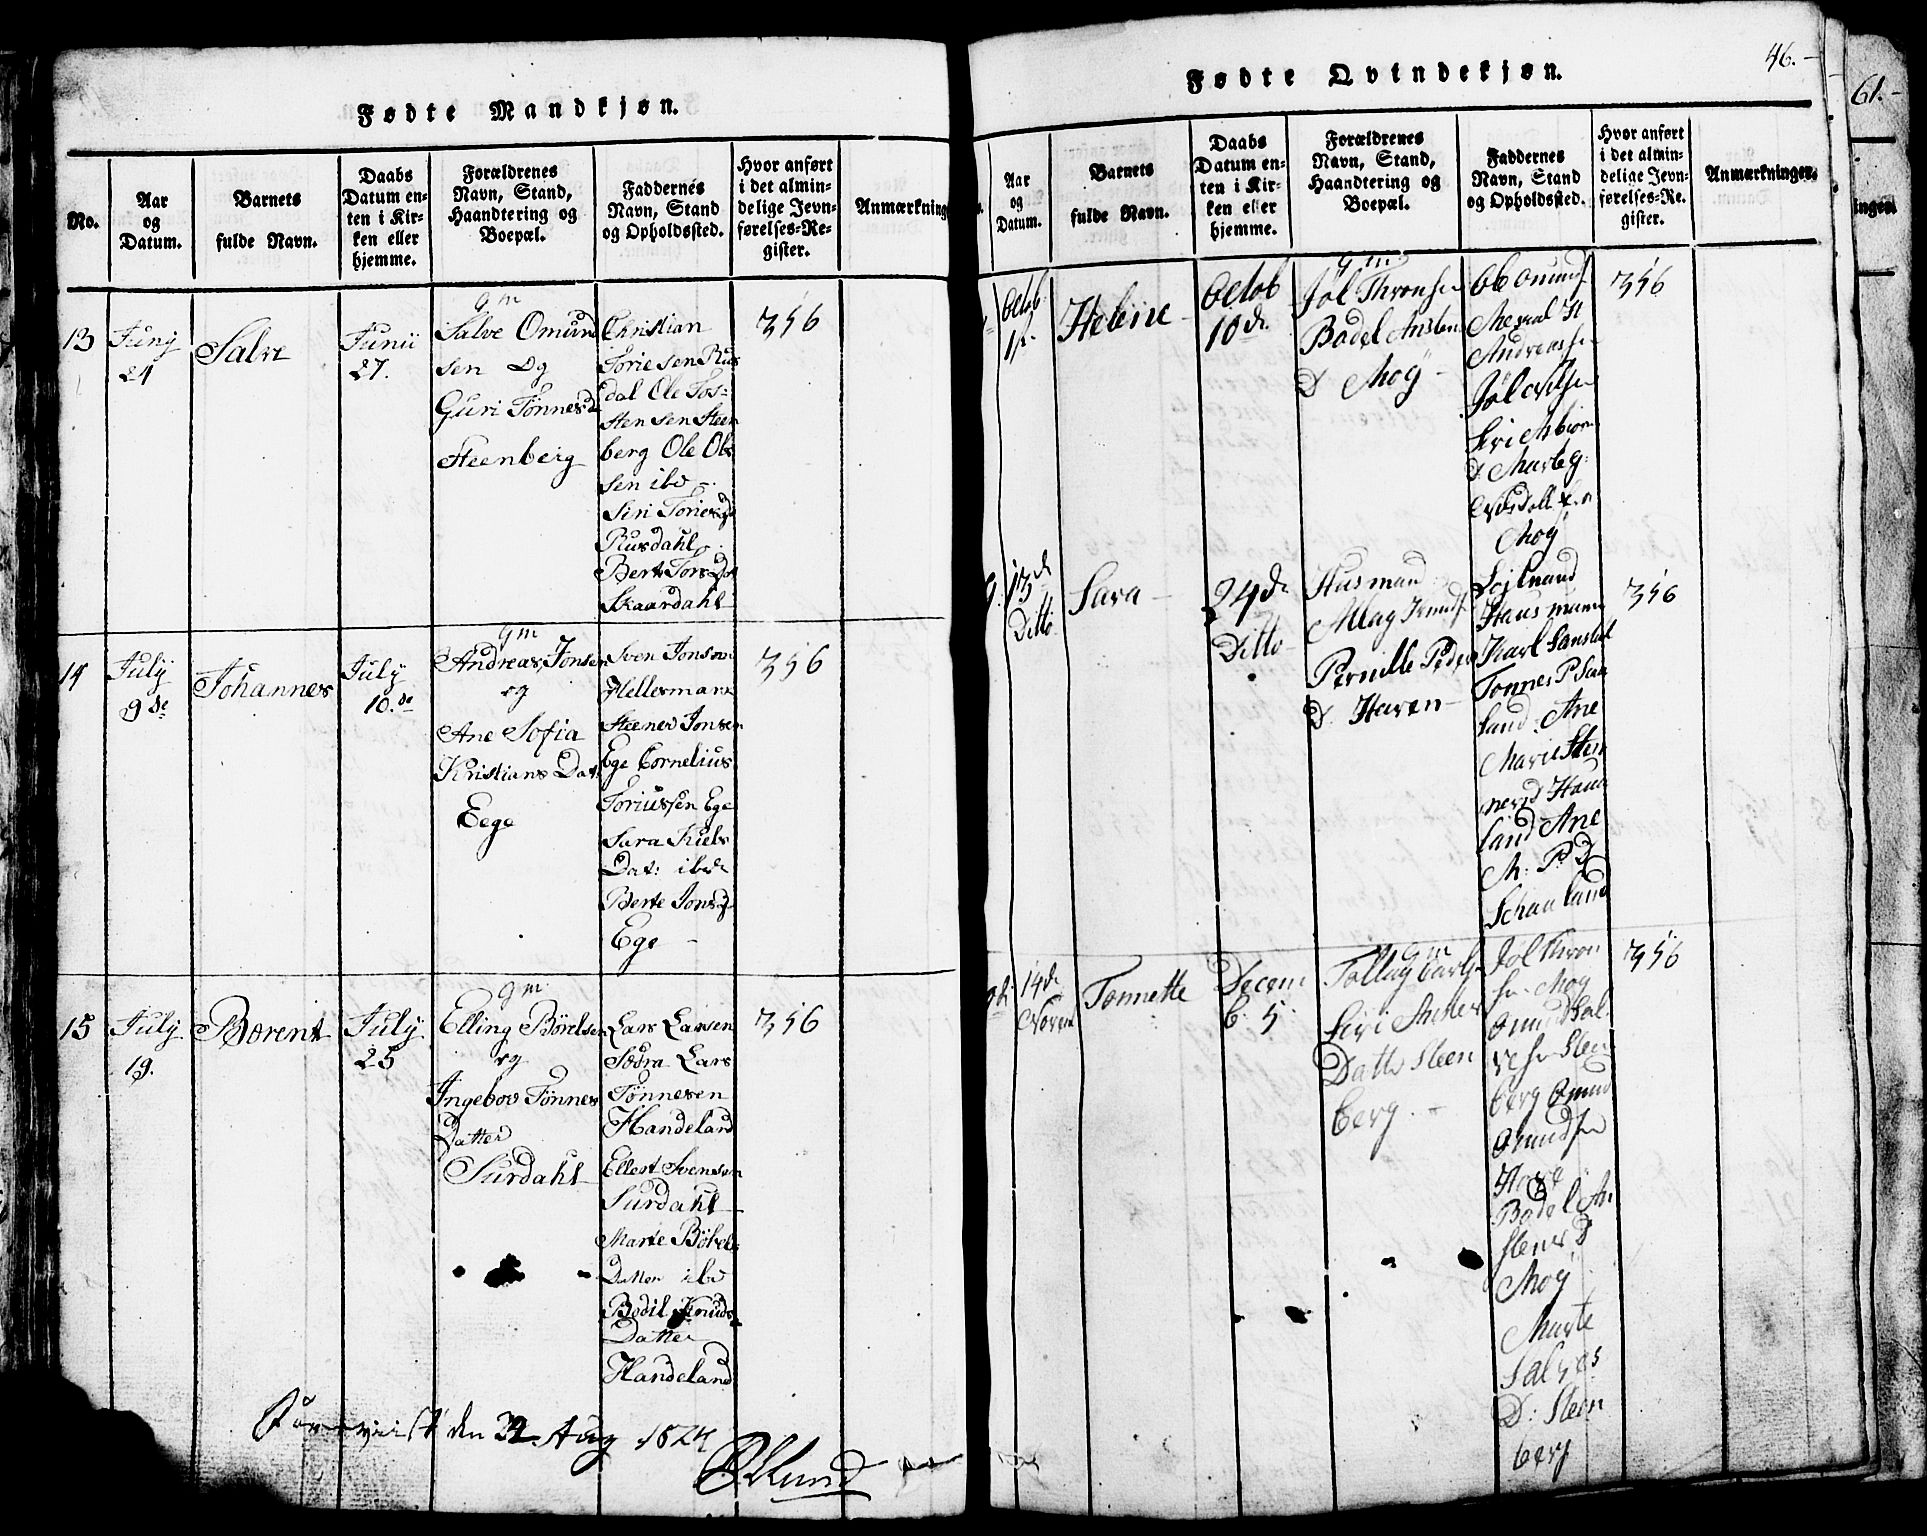 Fødte Mandkjøn.
No.
Aar
og
Datum.
Barnets
fulde Navn.
Daabs
Datum en-
ten i Kir-
ken eller
hjemme.
Forældrenes
Navn, Stand,
Haandtering og
Boepæl.
Faddernes
Navn, Stand
og Opholdssted.
Hvor anført
i det almin-
delige Jevn-
førelses-Re-
gister.
Anmærkning
13
Junij
24
Salve
Junii
27.
g m
Salve Omund
sen Og
Guri Tønnesd
Steenberg
Christian
Toriesen Rus
dal Ole Tos-
stensen Steen
berg Ole Ole
sen ibd
Siri Toriesd
Rusdahl
Berte Torsdat
Skaardahl
356
14
July
9de
Johannes
July
10.de
g m
Andreas Jonsen
og
Ane Sofia
Kristians Dat
Eege
Sven Jonsen
Hellesmark
Steener Jonsen
Ege Cornelius
Toriussen Ege
Sara Kiels
Dat: ibd
Berte Jonsd
Ege
356
15
July
19.
Børent
July
25
g m
Elling Børelsen
og
Ingebor Tønnes
Datter
Surdahl
Lars Larsen
Sødra Lars
Tønnesen
Handeland
Ellert Svensen
Surdahl
Marte Børels
Datter ibd
Bodil Knuds
Datter
Handeland
356
den Aug 1824
Fødte Qvindekjøn.
46.
61.
Aar
og
Datum.
Barnets
fulde Navn.
Daabs
Datum en-
ten i Kir-
ken eller
hjemme.
Forældrenes
Navn, Stand,
Haandtering og
Boepæl.
Faddernes
Navn, Stand
og Opholdssted.
Hvor anført
i det almin-
delige Jevn-
førelses-Re-
gister.
Anmærkninger.
ingen
Octob
1st
Helene
Octob
10de
g m
Jøl Thronsen
Bodel Anslen
D Moÿ
Ole Omunds
Andreassen
D Marte
Moÿ
356
13de
Ditto
Sara
24de
Ditto
Husmand
Pernille Peders
D. Haven
Løjtnand
Hausmann
Karl
Tonnes P Scha
land: Ane
Marie Sten
Hau
land Ane
M: P: D
Schauland
356
14de
Novem
Tonnette
Decem
b. 5.
g m
Tollag Carls
Siri
Datter Steen
berg
Jøl Thron
sen Moÿ
Omund Sal
vesen Steen
berg Omund
Omundsen
Bodel An
stens D
Moÿ
Marte
Salves
D: Steen
berg
356